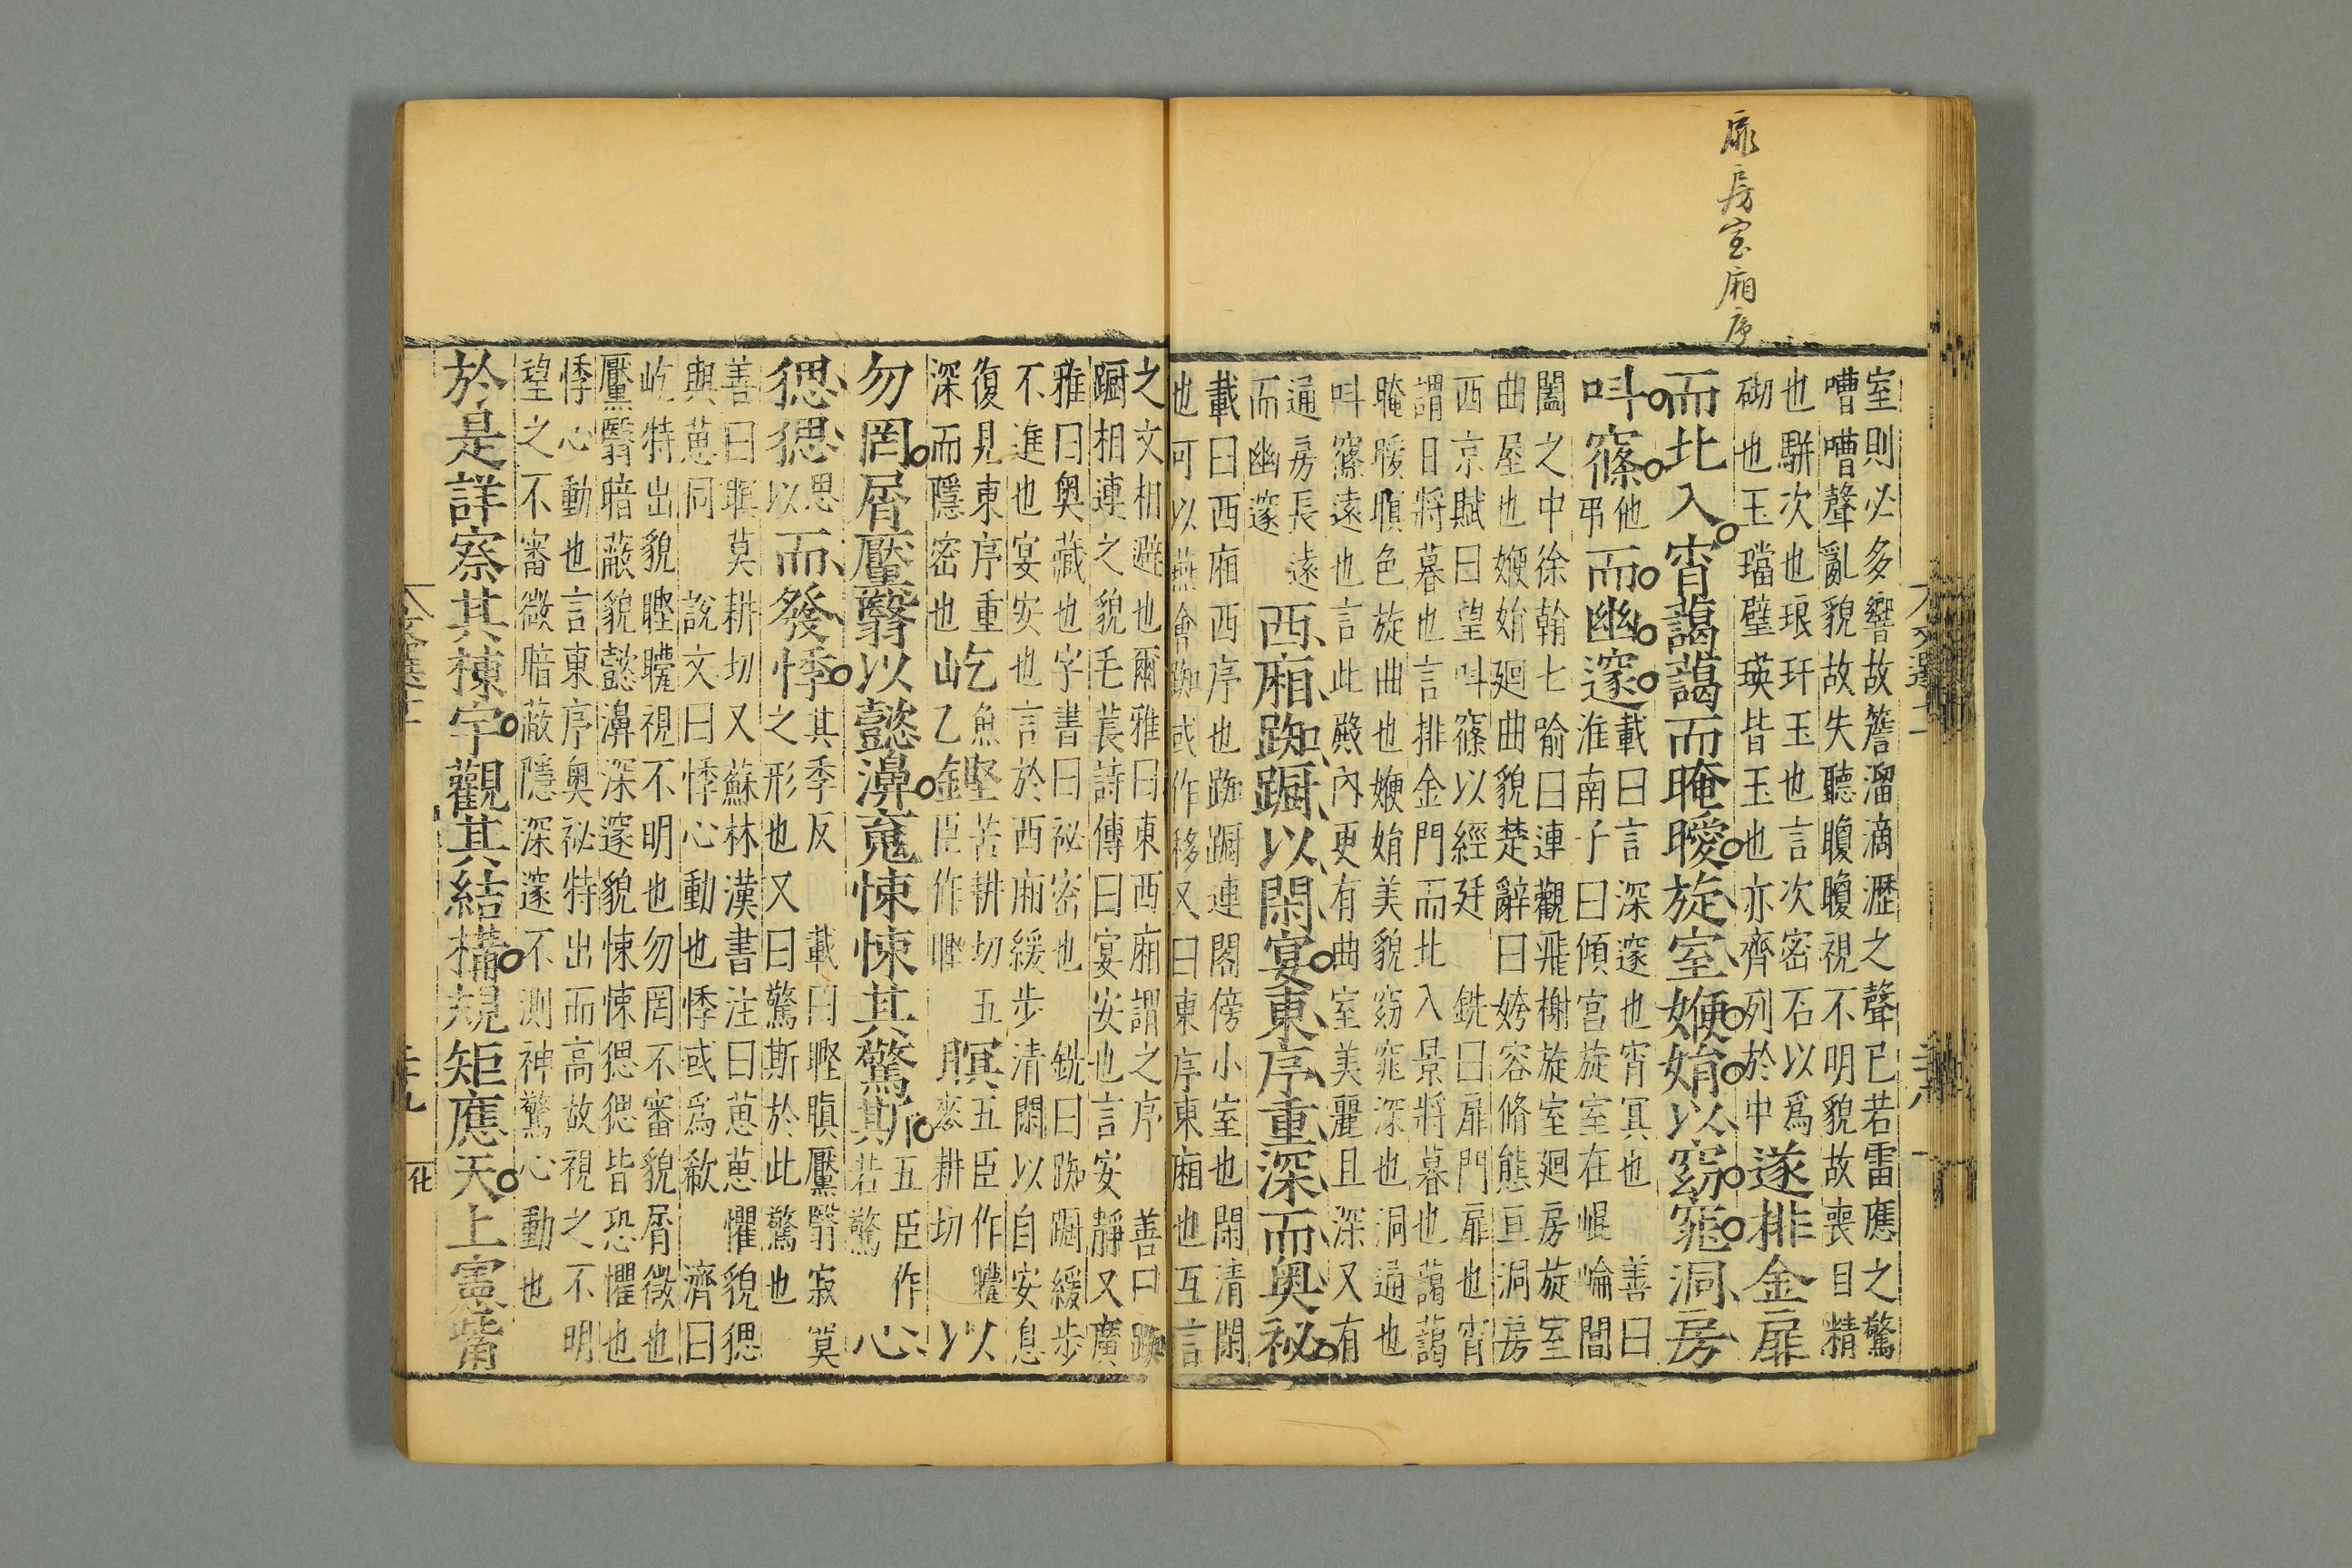 扉房室廂序
室則必多響故簷溜滴瀝之聲已若雷應之驚
嘈嘈聲亂貌故失聽矎矎視不明貌故喪目精
也駢次也琅玕玉也言次密石以爲
砌也玉璫璧瑛皆玉也亦齊列於中
遂排金扉
而北入宵藹藹而晻曖旋室㛹娟以窈窕洞房
叫窱
他
弔
而幽邃
載曰言深邃也宵冥也 善曰
淮南子曰傾宮旋室在崐崘閒
闔之中徐幹七喻曰連觀飛榭旋室廻房旋室
曲屋也㛹娟廻曲貌楚辭曰姱容脩態亘洞房
西京賦曰望叫窱以經廷 銑曰扉門扉也宵
謂日將暮也言排金門而北入景將暮也藹藹
晻曖暝色旋曲也㛹娟美貌窈窕深也洞通也
叫窱遠也言此殿內更有曲室美麗且深又有
通房長遠
而幽邃
西廂踟蹰以閑宴東序重深而奥祕
載曰西廂西序也踟蹰連閣傍小室也閑清閑
也可以燕會踟或作移又曰東序東廂也互言
之文相避也爾雅曰東西廂謂之序 善曰踟
蹰相連之貌毛萇詩傳曰宴安也言安靜又廣
雅曰奥藏也字書曰祕密也 銑曰踟蹰緩步
不進也宴安也言於西廂緩步清閑以自安息
復見東序重
深而隱密也
屹
魚
乙
鏗
苦耕切 五
臣作䡰
瞑
五臣作
麥耕切
矘以
勿罔屑黶翳以懿濞䰟悚悚其驚斯
五臣作
若驚
心
㥓㥓
思
以
而發悸
其季反 載曰瞑黶翳寂寞
之形也又曰驚斯於此驚也
善曰瞑莫耕切又蘇林漢書注曰葸葸懼貌㥓
與葸同 說文曰悸心動也悸或爲欷 濟曰
屹特出貌瞑矘視不明也勿罔不審貌屑微也
黶翳暗蔽貌懿濞深邃貌悚悚㥓㥓皆恐懼也
悸心動也言東序奥祕特出而高故視之不明
望之不審微暗蔽隱深邃不測神驚心動也
於是詳察其棟宇觀其結構規矩應天上憲觜